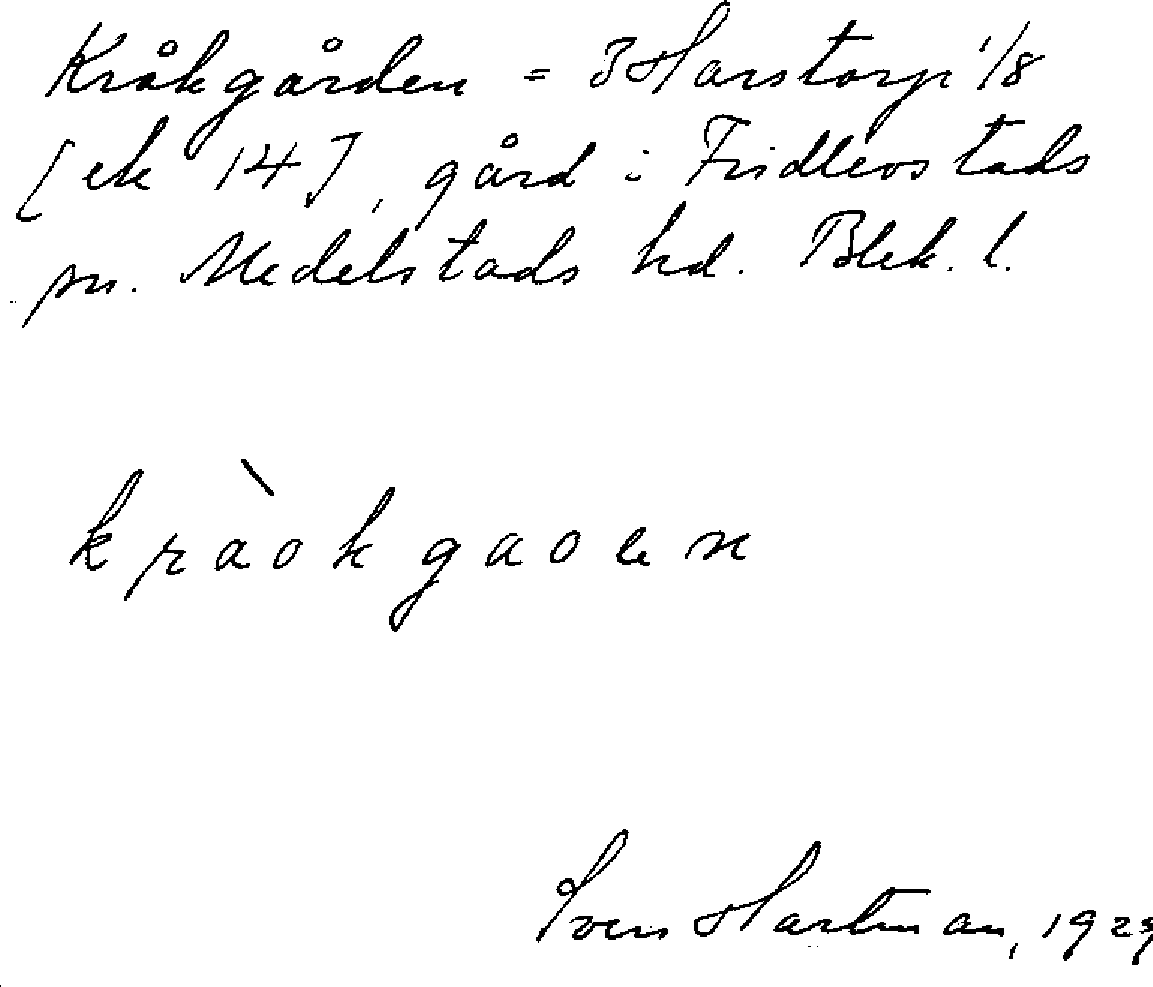 Kråkgården = 3 Harstorp 1/8
[ek 14], gård i Fridlevstads
sn. Medelstads hd. Blek. l.
kràokgaoen
Sven Hartman, 1929